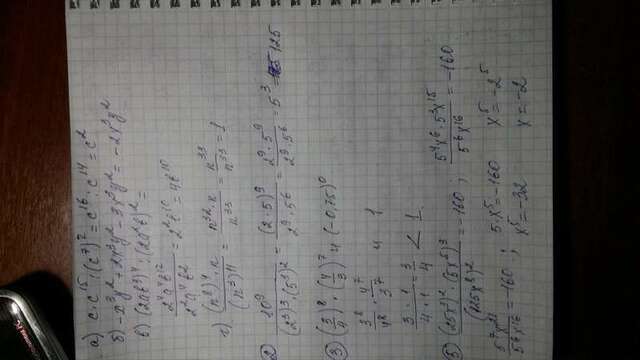 а) c·c¹⁵:(c⁷)² = c¹⁶:c¹⁴ = c²
б) -x³y² + 2x³y² - 3x³y² = -2x³y²
в) (2ab³)⁴:(2a²b)² =
2⁴a⁴b¹²/2²a⁴b² = 2²b¹⁰ = 4b¹⁰
г) (n⁸)⁴·n/(n³)¹¹ = n³²·n/n³³ = n³³/n³³ = 1
② 10⁹/(2³)³·(5²)³ = (2·5)⁹/2⁹·5⁶ = 2⁹·5⁹/2⁹·5⁶ = 5³ = 125
③ (3/4)⁸·(4/3)⁷ и (-0,75)⁰
3⁸/4⁸·4⁷/3⁷ и 1
3·1/4·1 = 3/4 < 1
(25x³)²·(5x⁵)³/(125x⁸)² = -160; 5⁴x⁶·5³x¹⁵/5⁶x¹⁶ = -160
5⁷x²¹/5⁶x¹⁶ = -160; 5·x⁵ = -160 x⁵ = -2⁵
x⁵ = -32 x = -2